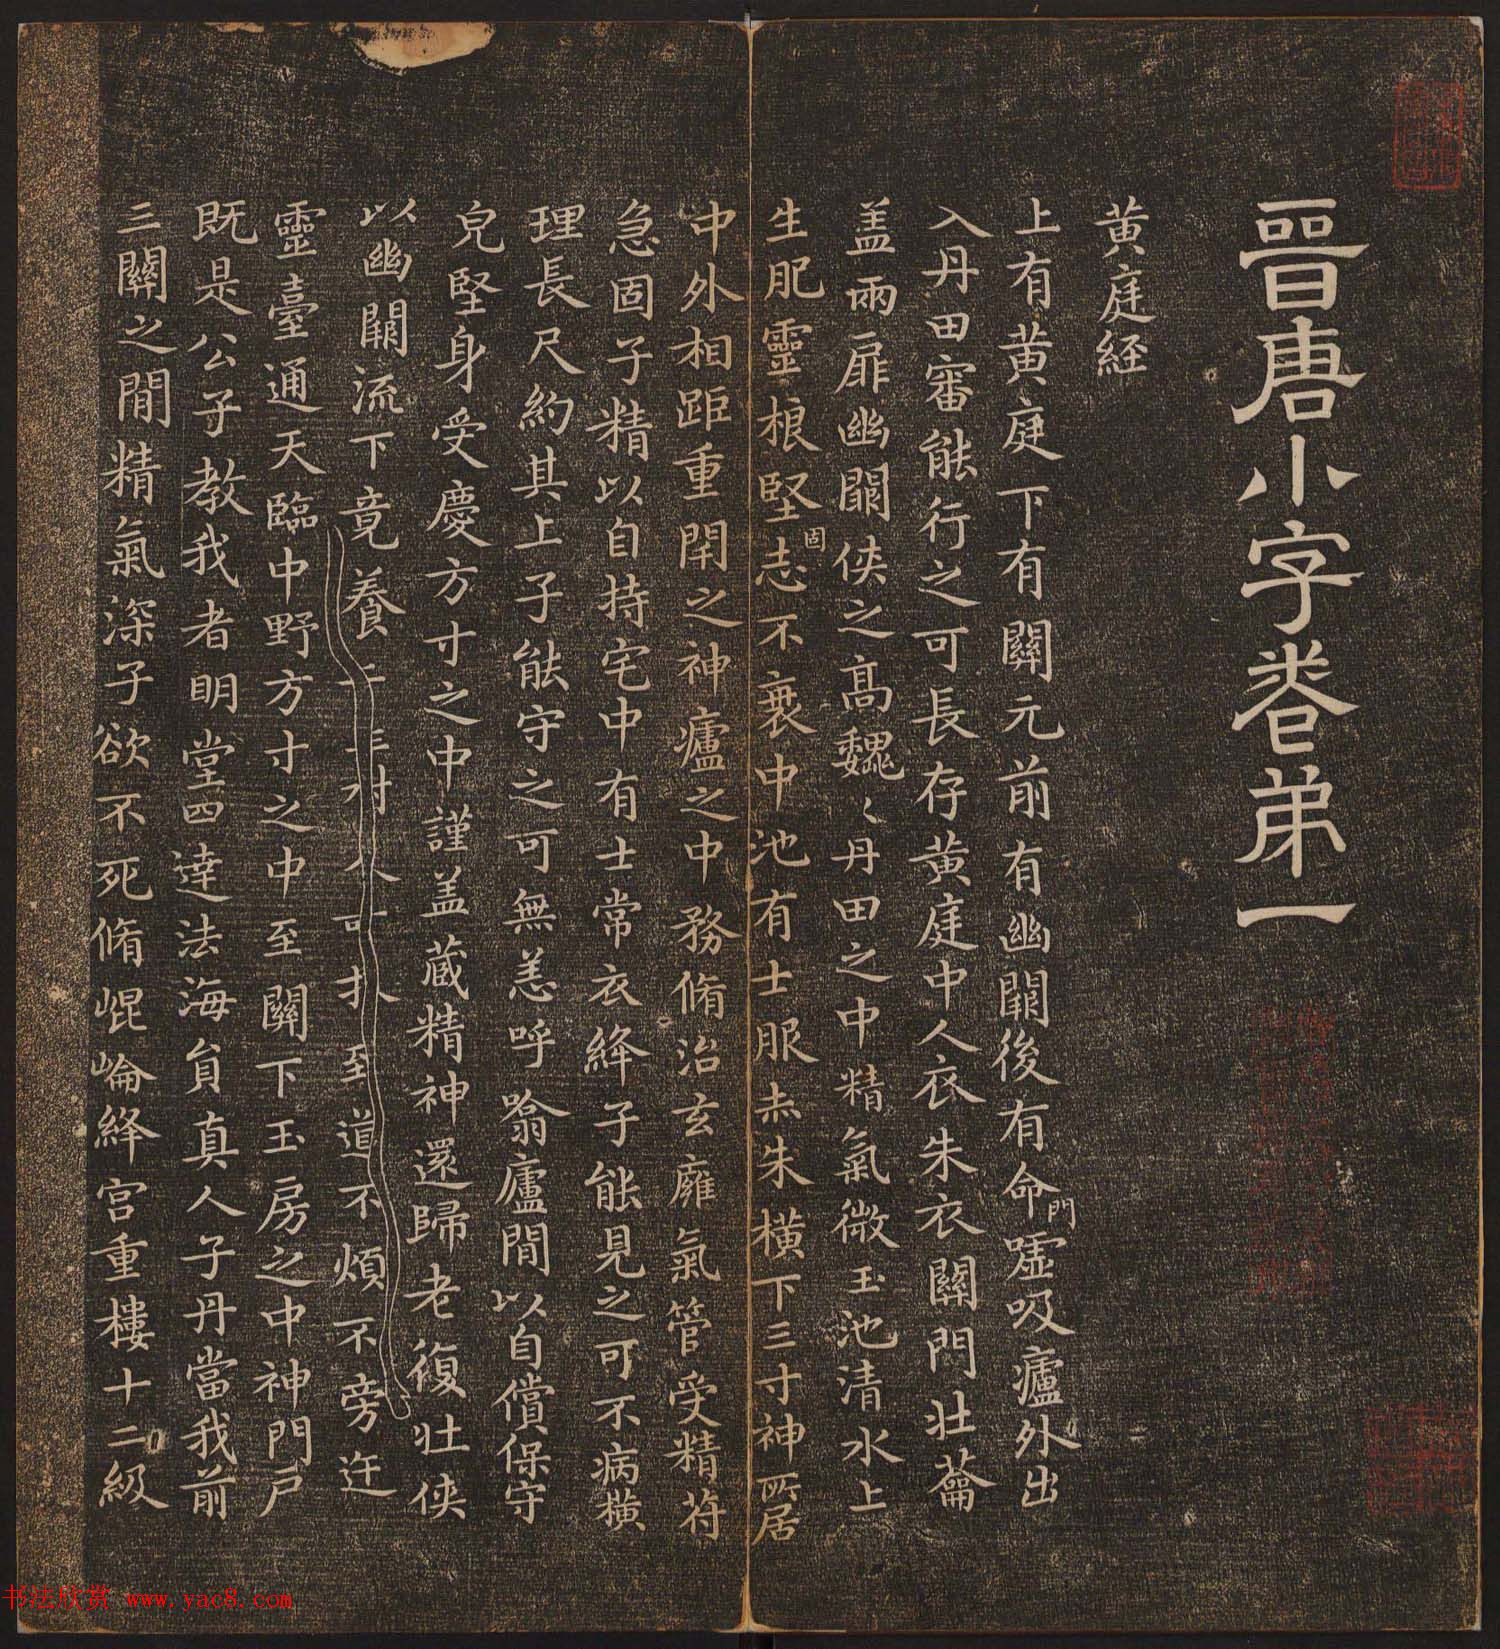 晉唐小字卷弟一
黃庭經
上有黃庭下有關元前有幽闕後有命門噓吸廬外出
入丹田審能行之可長存黃庭中人衣朱衣關門壯蘥
盖兩扉幽闕俠之高魏〻丹田之中精氣微玉池清水上
生肥靈根堅固志不衰中池有士服赤朱橫下三寸神所居
中外相距重閇之神廬之中務脩治玄廱氣管受精符
急固子精以自持宅中有士常衣絳子能見之可不病橫
理長尺約其上子能守之可無恙呼噏廬閒以自償保守
皃堅身受慶方寸之中謹盖藏精神還歸老復壯俠
以幽闕流下竟養子玉樹令可扶至道不煩不旁迕
靈臺通天臨中野方寸之中至關下玉房之中神門戶
既是公子教我者明堂四達法海員真人子丹當我前
三關之閒精氣深子欲不死脩崐崘絳宮重樓十二級
书法欣赏 www.yac8.com